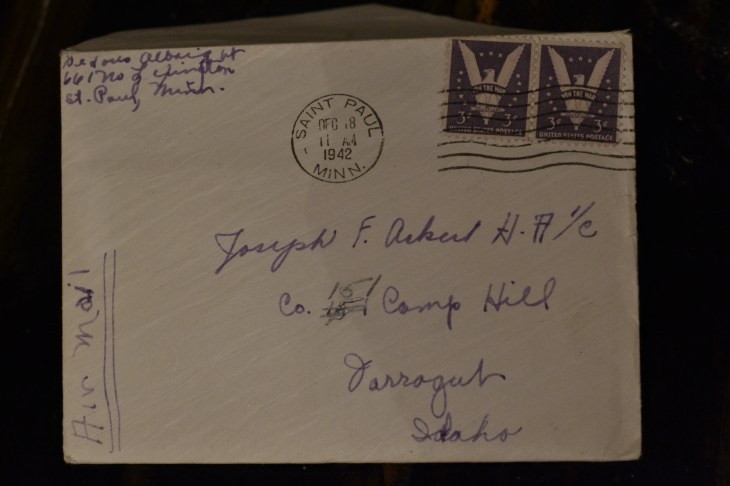 Delous Albright
661 No Lexington
St. Paul, Minn.
SAINT PAUL
DEC 18
11 AM
1942
MINN.
WIN THE WAR
3¢ 3¢
UNITED STATES POSTAGE
WIN THE WAR
3¢ 3¢
UNITED STATES POSTAGE
Joseph F. Ackert H.A 1/c
Co. 151 Camp Hill
Farragut
Idaho
Air Mail